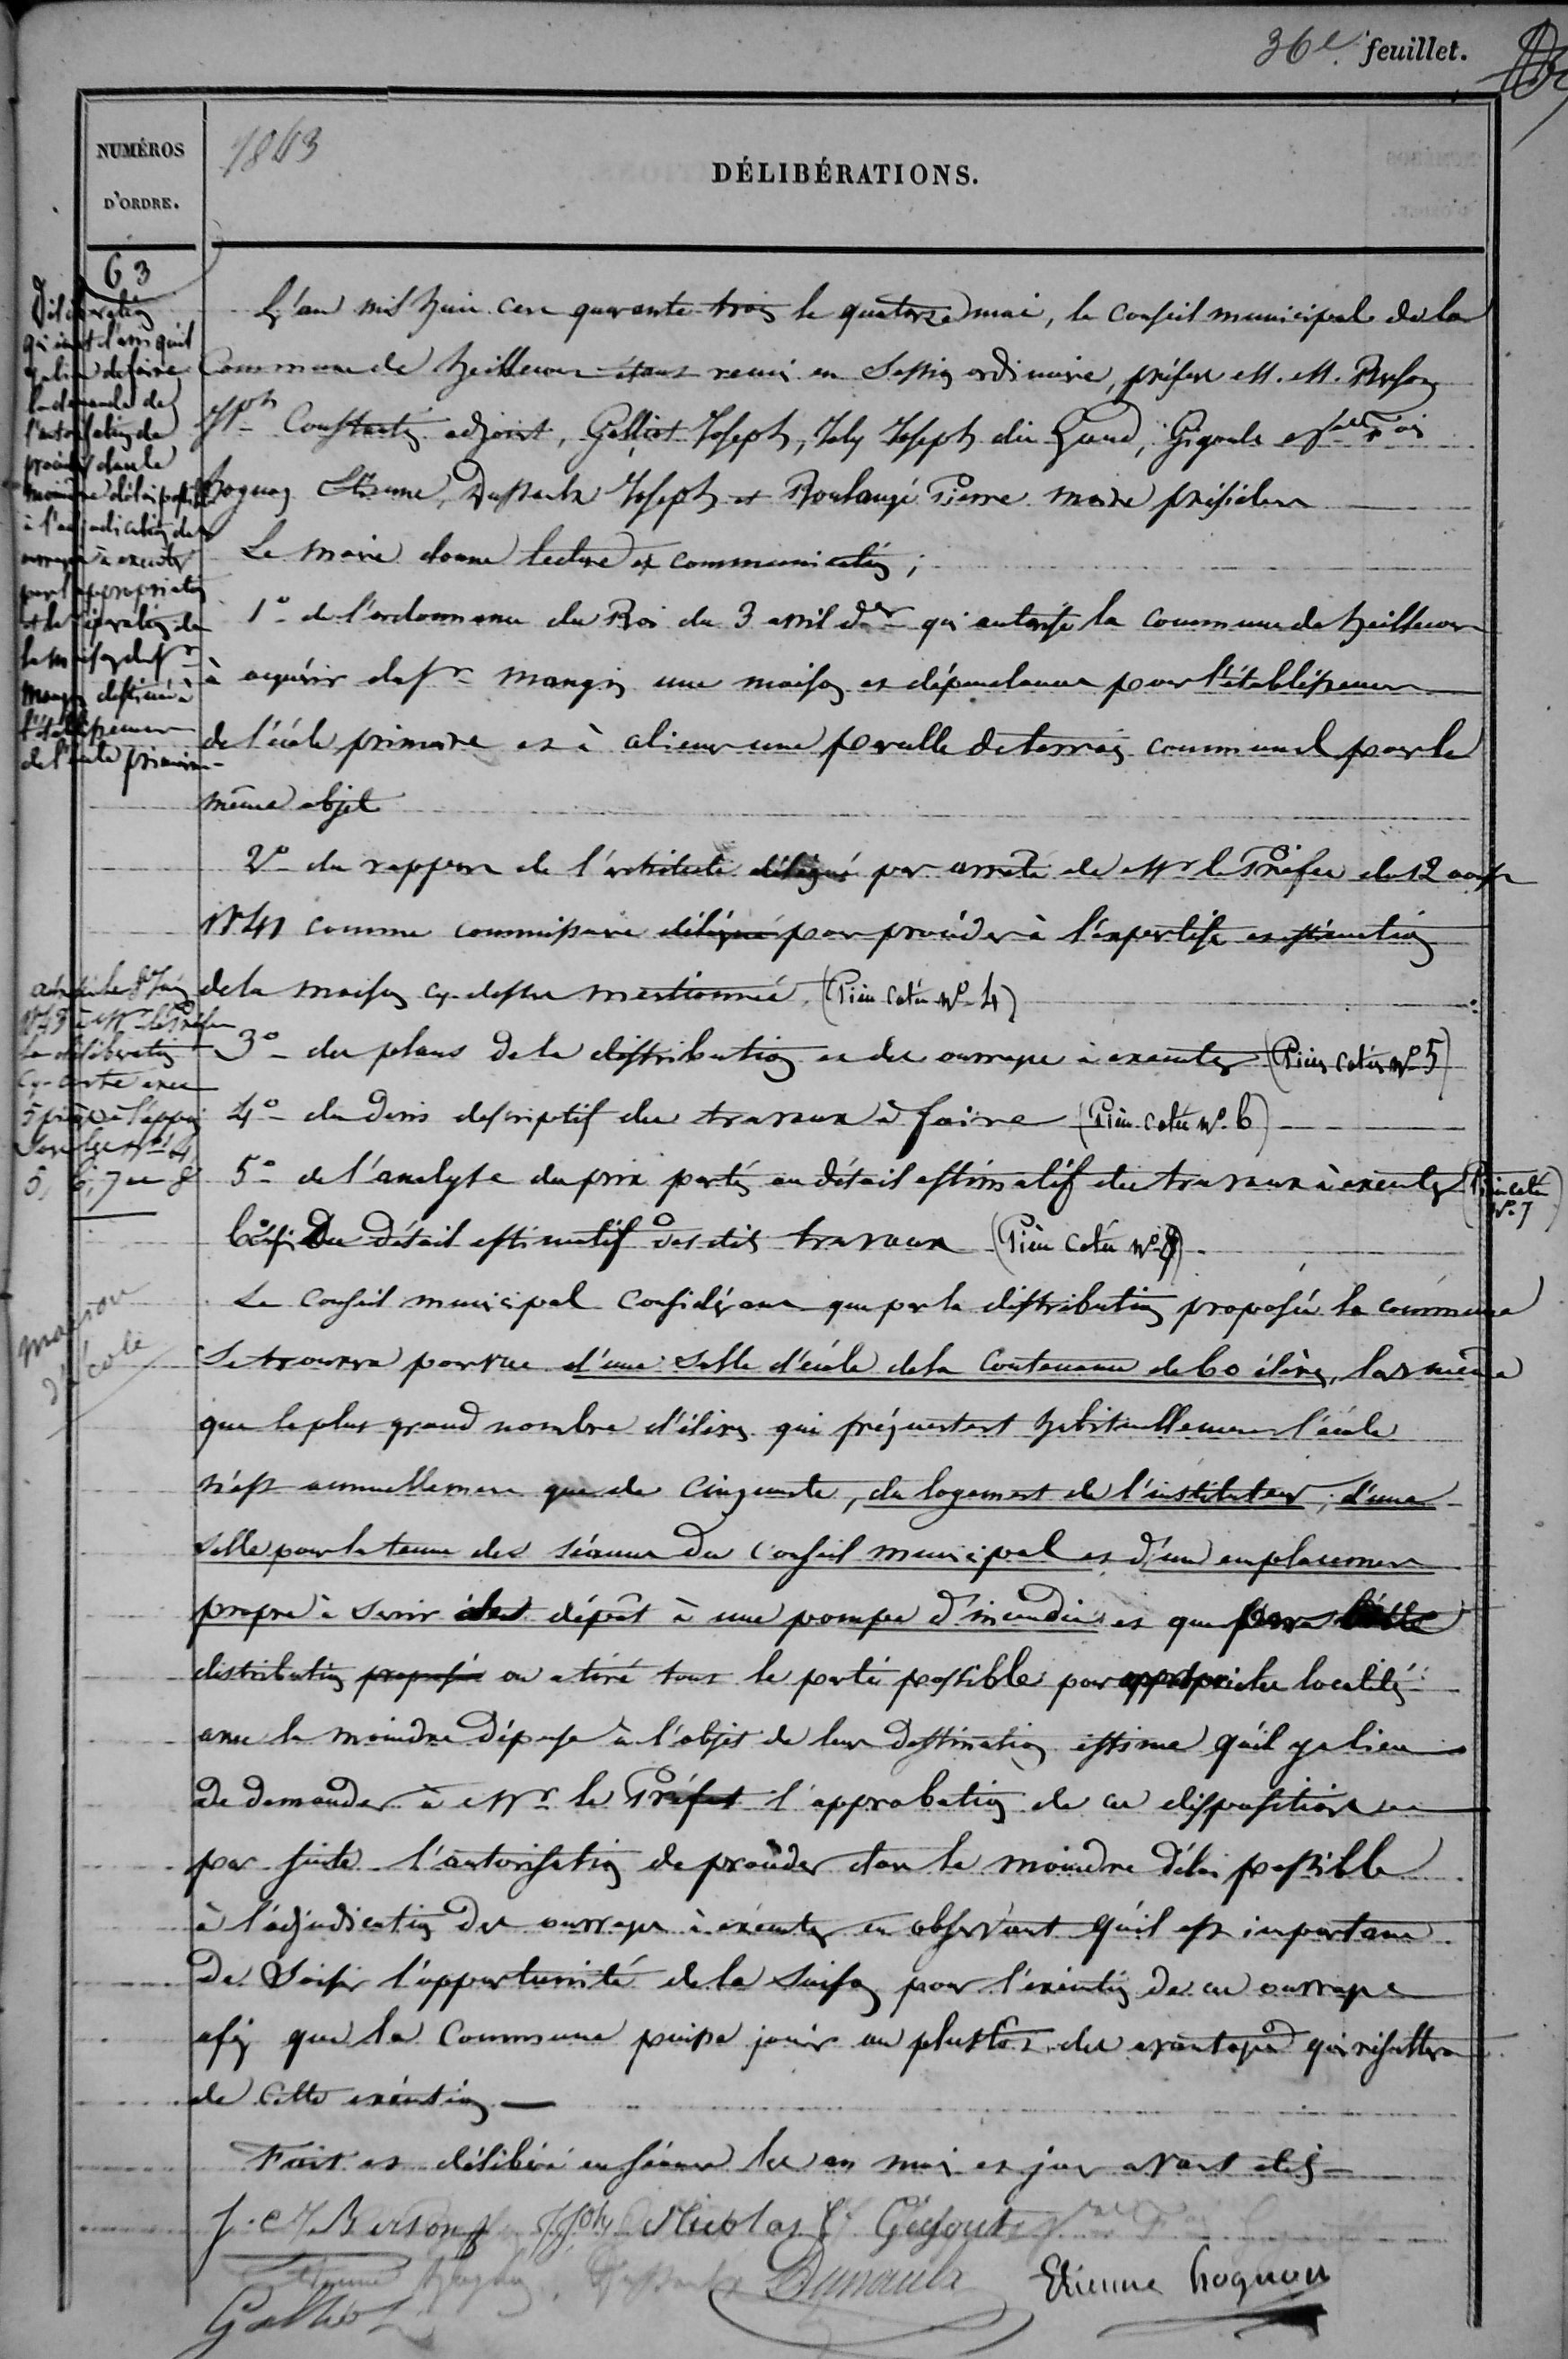 36e. feuillet.
NUMÉROS
D'ORDRE.
1843
DÉLIBÉRATIONS.
63
Délibération
qui émet l'avis qu'il
y a lieu de faire
la demande de
l'autorisation de
procéder dans le
moindre délai possible
à l'adjudication des
ouvrages à exécuter
pour l'appropriation
et la réparation de
la maison du Sr
Mangin destinée à
l'établissement
de l'école primaire
L'an mil huit cent quarante trois le quatorze mai, le conseil municipal de la
Commune de heillecourt étant réuni en Session ordinaire, présens M. M.
Jph Constantin adjoint, Galliot Joseph, Joly Joseph dit Grand, Gigoult
hognon Etienne, Joseph et Boulangé Pierre maire président
Le maire donne lecture et communication ;
1° de l'ordonnance du Roi du 3 avril der qui autorise la commune de heillecourt
à acquérir du Sr Mangin une maison et dépendances pour l'établissement
de l'école primaire et à aliener une parcelle de terrain communal pour le
même objet
2° du rapport de l'architecte délégué par arrêté de Mr le Préfet du 12 aout
1841 comme commissaire délégué pour procéder à l'expertise estimation
de la maison cy-dessus mentionnée. (Pièce cotée No 4)
3° des plans de la distribution et des ouvrages à exécuter (Pièces cotées No 5)
4° du devis descriptif des travaux à faire (Pièce cotée No 6)
5° de l'analyse des prix portés au détail estimatif des travaux à exécuter (Pièce cotée No 7)
6° Du détail estimatif desdits travaux (Pièce cotée No 8)
adressé le Juin
1843 à Mr le Préfet
la délibération
cy-contre avec
5 pièces à l'appui
sous les Nos 4,
5, 6, 7 et 8
maison
d'école
Le Conseil municipal Considérant que par la distribution proposée la commune
Se trouvera pourvue d'une Salle d'école de la Contenance de 60 élèves, lors même
que le plus grand nombre d'élèves qui fréquentent habituellement l'école
n'est annuellement que de Cinquante, du logement de l'instituteur, d'une
Salle pour la tenue des séances du Conseil municipal et d'un emplacement
propre à servir de dépôt à une pompe d'incendie et que cette
distribution proposée on a tiré tout le parti possible pour approprier les localités
avec la moindre dépense à l'objet de leur destination estime qu'il y a lieu
de demander à Mr le Préfet l'approbation de ces dispositions et
par suite l'autorisation de procéder dans le moindre délai possible
à l'adjudication des ouvrages à exécuter en observant qu'il est important
De Saisir l'opportunité de la Saison pour l'exécution de ces ouvrages
afin que la Commune puisse jouir au plustôt des avantages qui résulteront
de Cette exécution
Fait et délibéré en séance les an mois et jour avant dits
Nicolas Gigout
Etienne hognon
Galliot